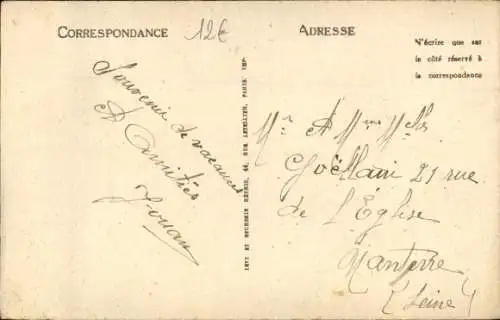 CORRESPONDANCE
12€
ADRESSE
N'écrire que sur
le côté réservé à
la correspondance
Souvenir de vacances
& Amitiés
LEVY ET NEURDEIN RÉUNIS, 44, RUE LETELLIER, PARIS. IMP.
Mr & Mme Mlles
Goëllain 21 rue
de l'Église
Nanterre
(Seine)